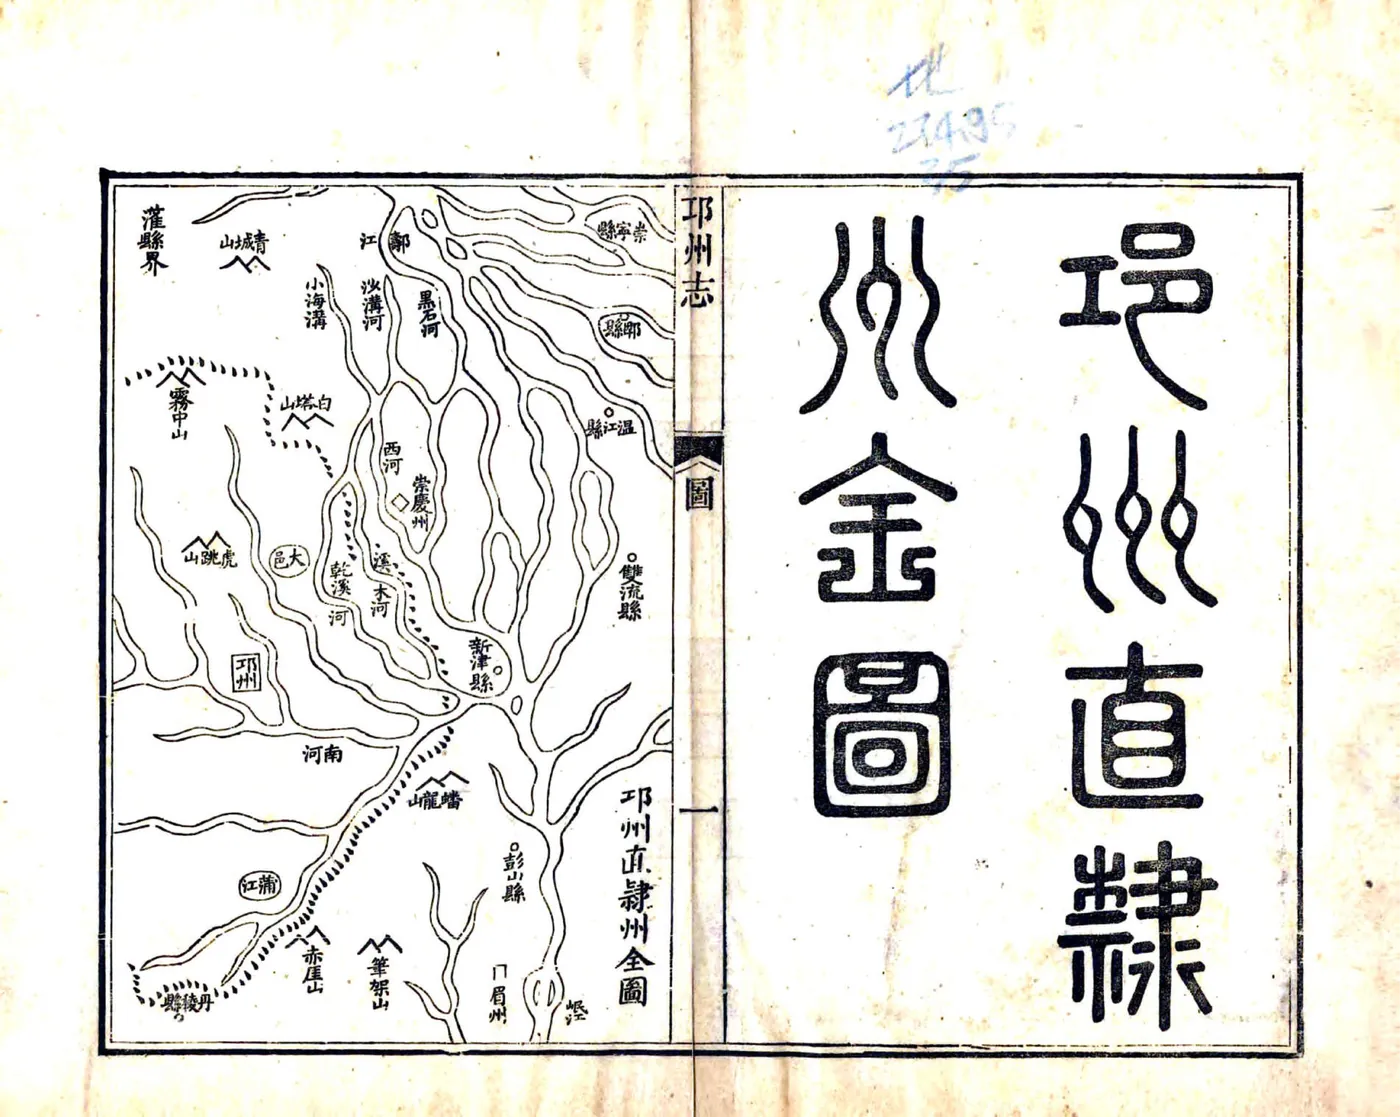 邛州直隸
州全圖
邛州志
圖
一
邛州直隸州全圖
崇寧縣
郫縣
温江縣
雙流縣
江
黑石河
沙溝河
小海溝
青城山
灌縣界
霧中山
白塔山
西河
崇慶州
溪木河
乾溪河
大邑
虎跳山
邛州
新津縣
南河
蟠龍山
彭山縣
蒲江
赤崖山
筆架山
眉州
岷江
丹稜縣